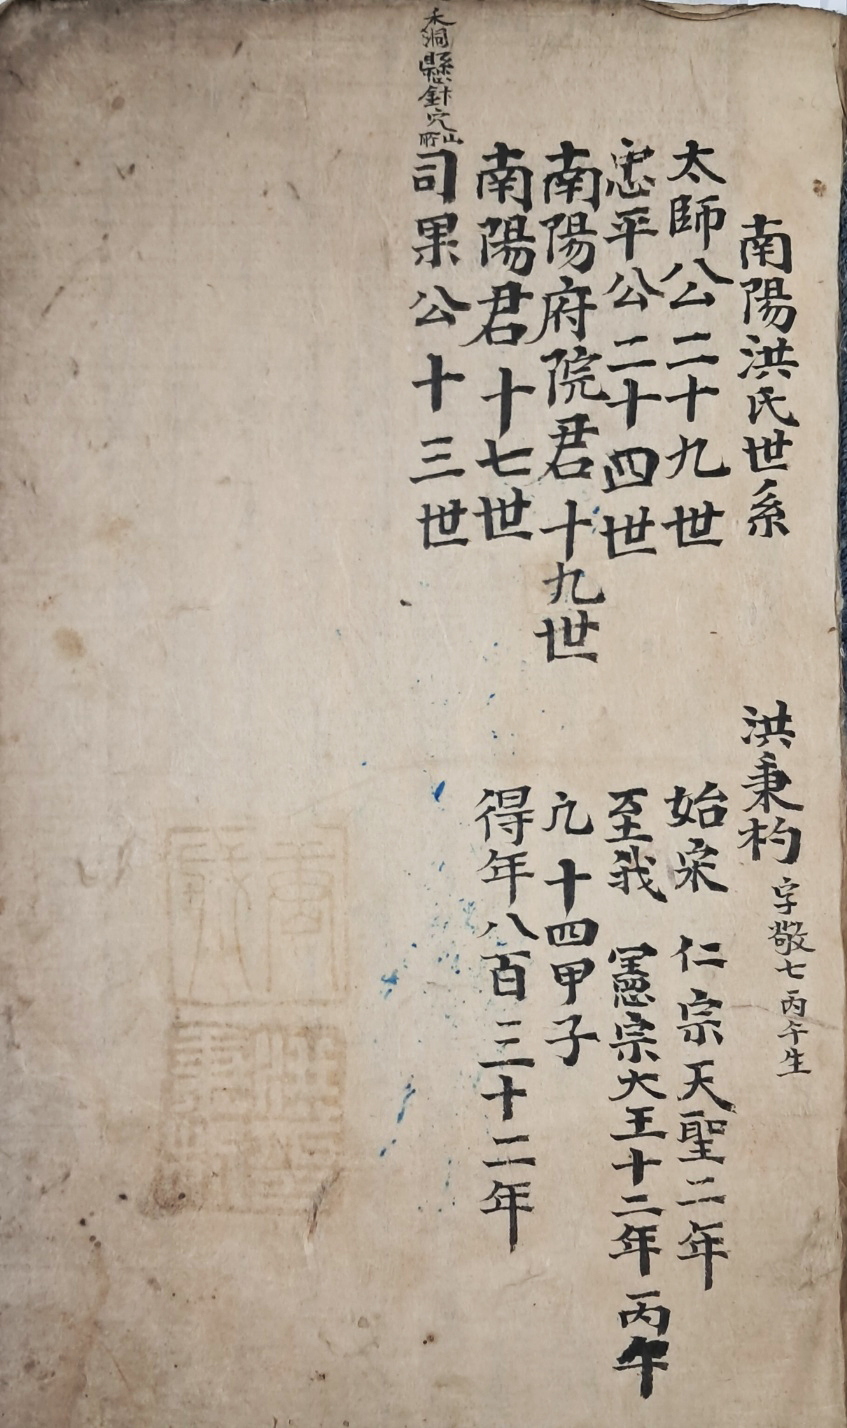 南陽洪氏世系
洪秉杓 字敬七 丙午生
太師公二十九世
忠平公二十四世
南陽府院君十九世
南陽君十七世
禾洞懸針穴
司果公十三世
始宋 仁宗天聖二年
至我 憲宗大王十二年丙午
凢十四甲子
得年八百三十二年